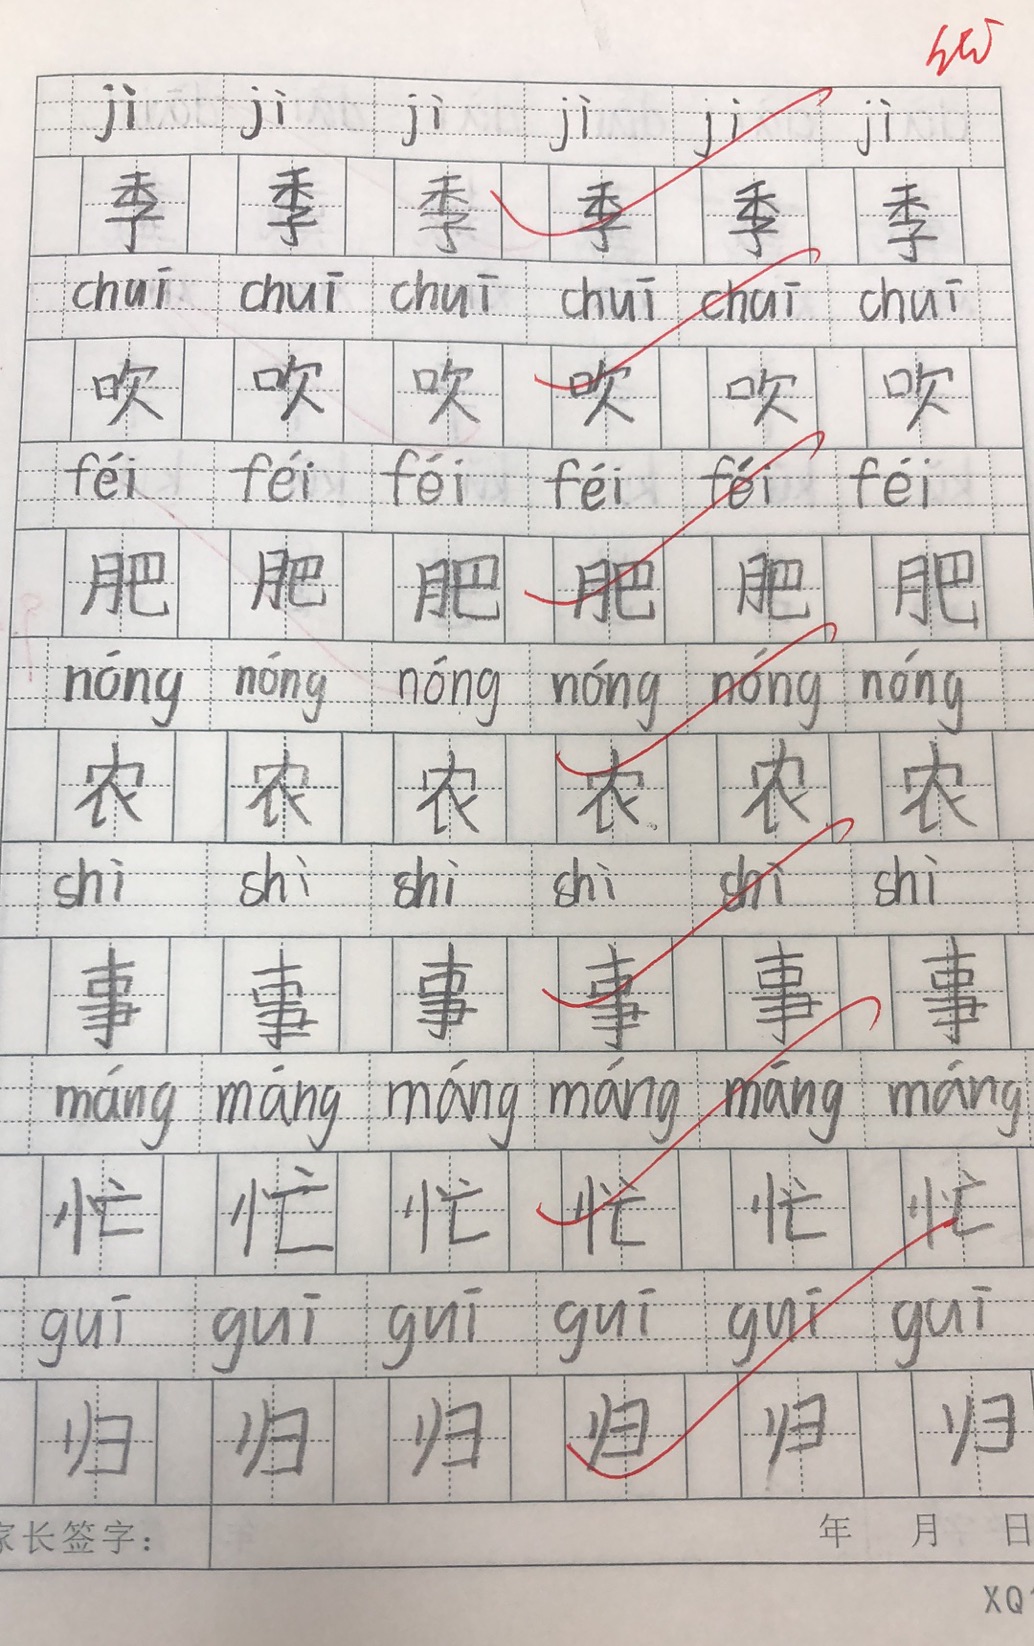 jì jì jì jì jì jì
季 季 季 季 季 季
chuī chuī chuī chuī chuī chuī
吹 吹 吹 吹 吹 吹
féi féi féi féi féi féi
肥 肥 肥 肥 肥 肥
nóng nóng nóng nóng nóng nóng
农 农 农 农 农 农
shì shì shì shì shì shì
事 事 事 事 事 事
máng máng máng máng máng máng
忙 忙 忙 忙 忙 忙
guī guī guī guī guī guī
归 归 归 归 归 归
家长签字： 年 月 日
XQ